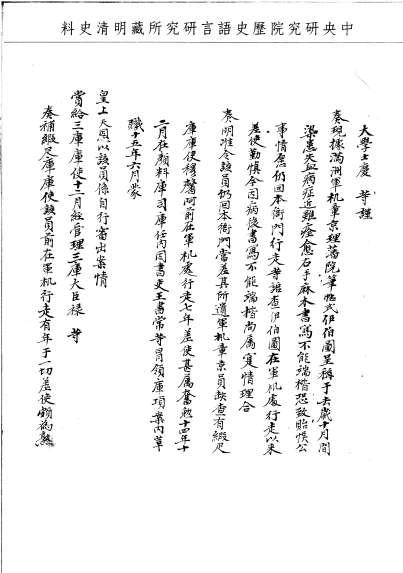 中央研究院歷史語言研究所藏明清史料
大學士慶 等謹
奏現據滿洲軍机章京理藩院筆帖式伊伯圖呈稱于去歲十月間
染患失血病症近雖痊愈右手麻木書寫不能端楷恐致貽悞公
事情愿仍回本衙門行走等語查伊伯圖在軍机處行走以來
差使勤慎今因病後書寫不能端楷尚属寔情理合
奏明准令該員仍回本衙門當差其所遺軍机章京員缺查有緞疋
庫庫使穆 阿前在軍机處行走七年差使甚属奮勉十四年十
二月在顏料庫司庫任內因書吏王書常等冒領庫項案內革
職十五年六月蒙
皇上天恩以該員係自行審出案情
賞給三庫庫使十一月經管理三庫大臣祿 等
奏補緞疋庫庫使該員前在軍机行走有年于一切差使頗為熟